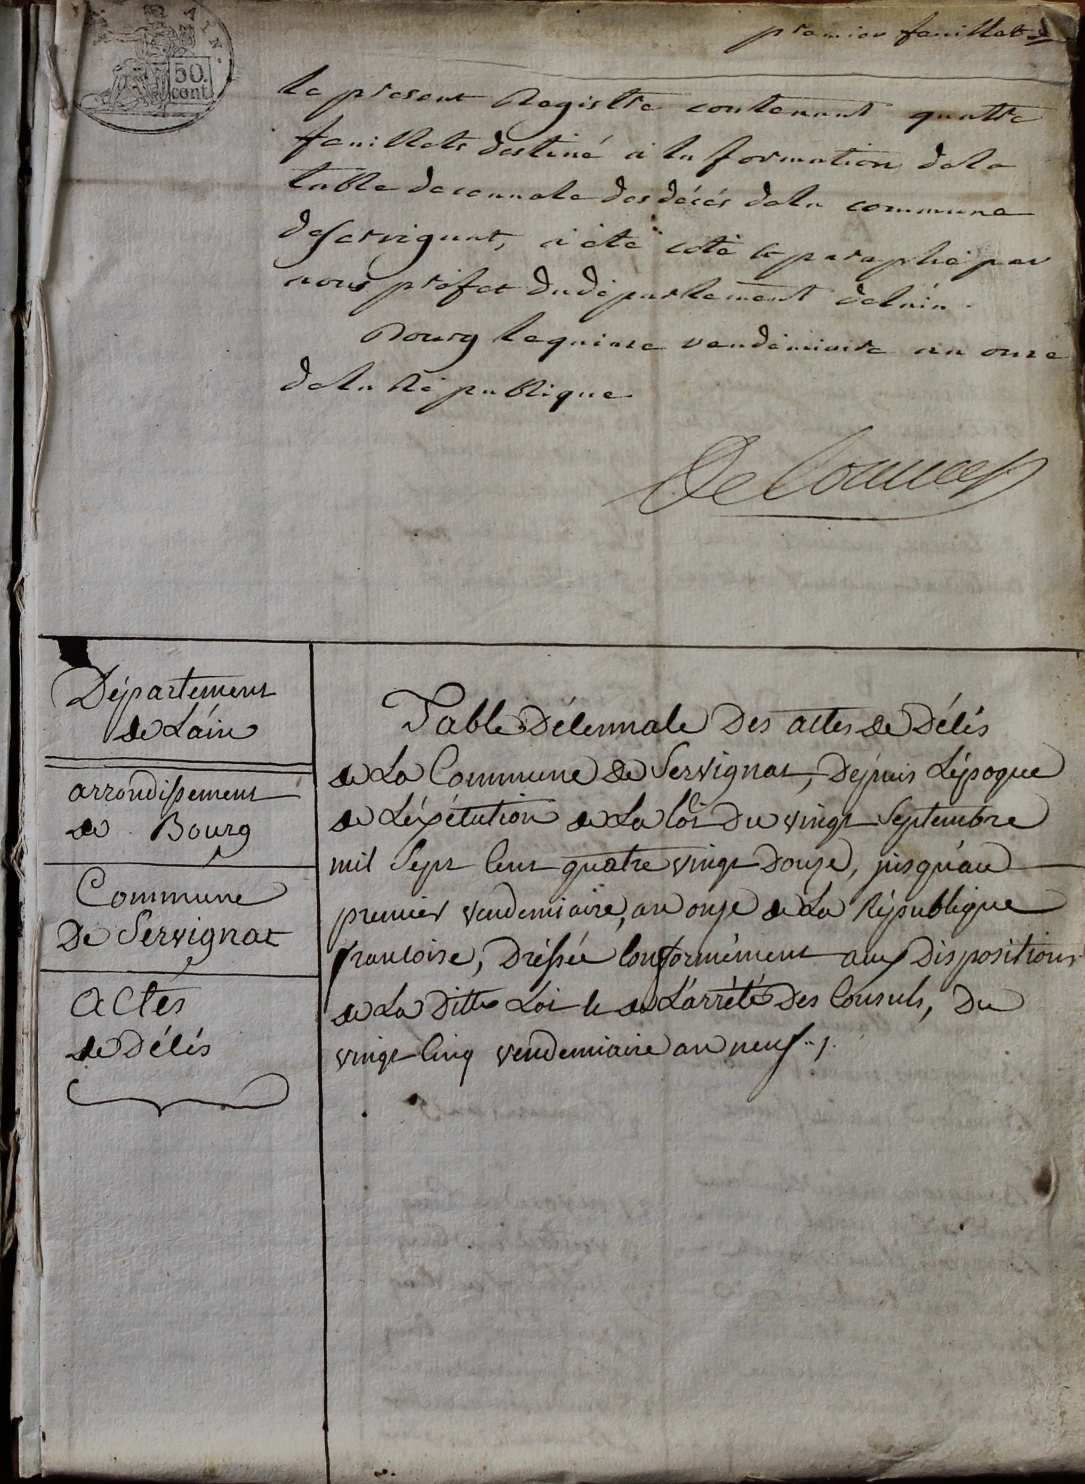 AIN.
50.
cent.
premier feuillet
le present Registre contenant quatre
feuillets destiné à la formation de la
table decennale des décés de la commune
de Servignat, a été coté & paraphé par
nous préfet du département de l'ain.
Bourg le quinze vendémiaire an onze
de la République
Département
de Láin
arrondissement
de Bourg
Commune
De Servignat
actes
de Décés
Table Décennale Des actes de Décés
de La Commune de Servignat, Depuis L'époque
de L'éxécution de La loi Du vingt Septembre
mil Sept Cent quatre vingt Douze, jusqu'au
premier vendemiaire, an onze de La République
francoise, Dréssée Conformément aux Dispositions
de La Ditte Loi & de L'arrété Des Consuls, Du
vingt Cinq vendemiaire an neuf ./.